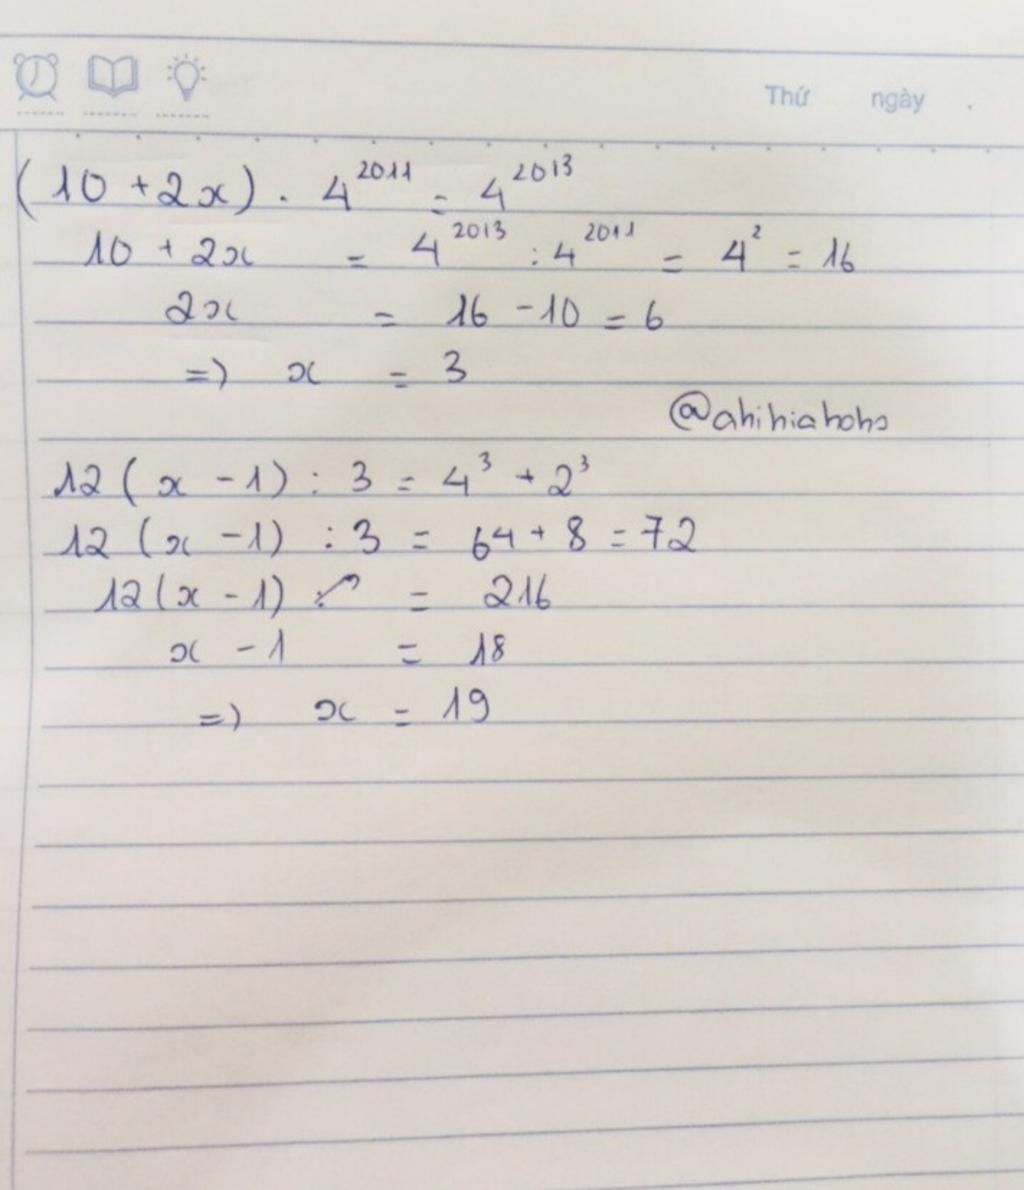 Thứ ngày .
(10 + 2x) . 4^2011 = 4^2013
10 + 2x = 4^2013 : 4^2011 = 4^2 = 16
2x = 16 - 10 = 6
=) x = 3
@ahihiahoho
12 ( x - 1) : 3 = 4^3 + 2^3
12 (x - 1) : 3 = 64 + 8 = 72
12(x - 1) = 216
x - 1 = 18
=) x = 19